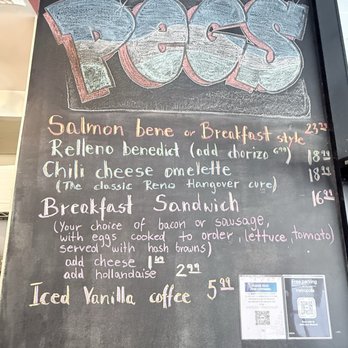 PEGS
Salmon bene or Breakfast style 23.99
Relleno benedict (add chorizo 6.99) 18.99
Chili cheese omelette 18.99
(The classic Reno Hangover cure)
Breakfast Sandwich 16.99
(Your choice of bacon or sausage,
with eggs cooked to order, lettuce, tomato)
served with hash browns)
add cheese 1.89
add hollandaise 2.99
Iced Vanilla coffee 5.99
Free parking